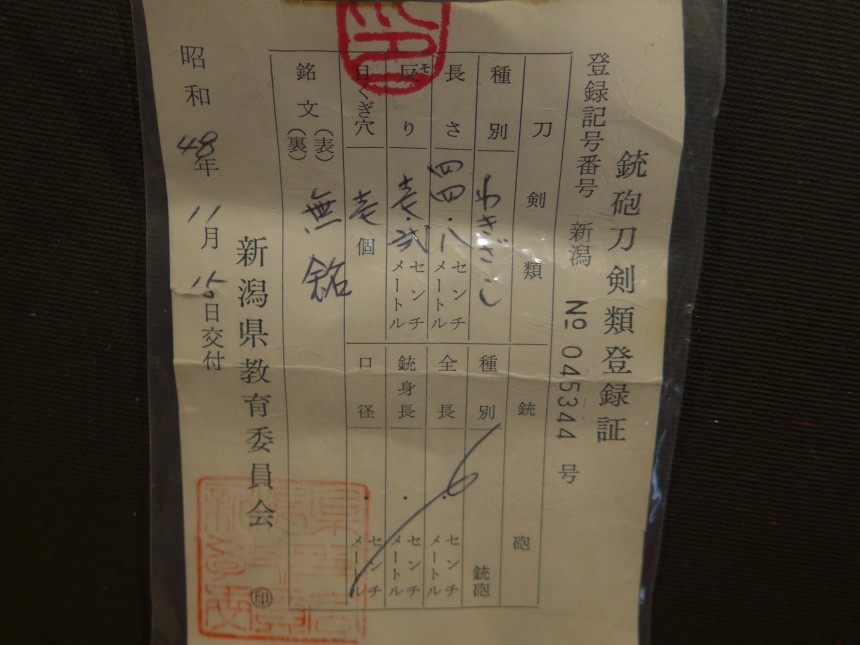 銃砲刀剣類登録証
登録記号番号 新潟 №045344 号
刀剣類
種別 わきざし
長さ 四四・八 センチメートル
反り そ 壱・弐 センチメートル
目くぎ穴 壱個
銘文 (表) 無銘
(裏)
銃砲
種別 銃砲
全長 ・ センチメートル
銃身長 ・ センチメートル
口径 ・ センチメートル
昭和48年11月15日交付
新潟県教育委員会 ㊞